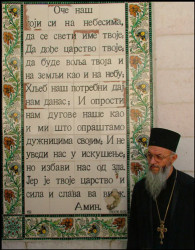 Оче наш
који си на небесима,
да се свети име твоје,
Да дође царство твоје,
да буде воља твоја и
на земљи као и на небу,
Хлеб наш потребни дај
нам данас; И опрости
нам дугове наше као
и ми што опраштамо
дужницима својим, И не
уведи нас у искушење,
но избави нас од зла.
Јер је твоје царство и
сила и слава ва век
Амин.